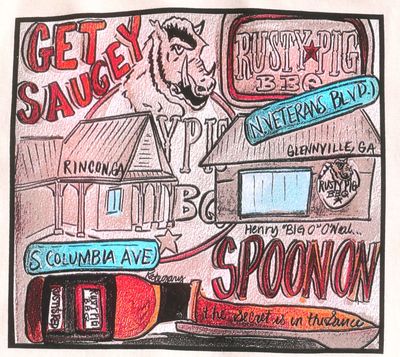 GET
SAUCEY
RUSTY★PIG
BBQ
N.VETERANS BLVD.)
GLENNVILLE, GA
RINCON, GA
YPIG
BQ
RUSTY PIG
BBQ
Henry "BIG O" O'Neal...
S. COLUMBIA AVE
SPOON ON
the secret is in the Sauce